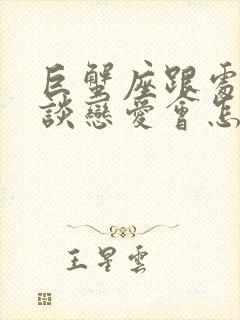 巨蟹座跟處
談戀愛會怎
王星雲